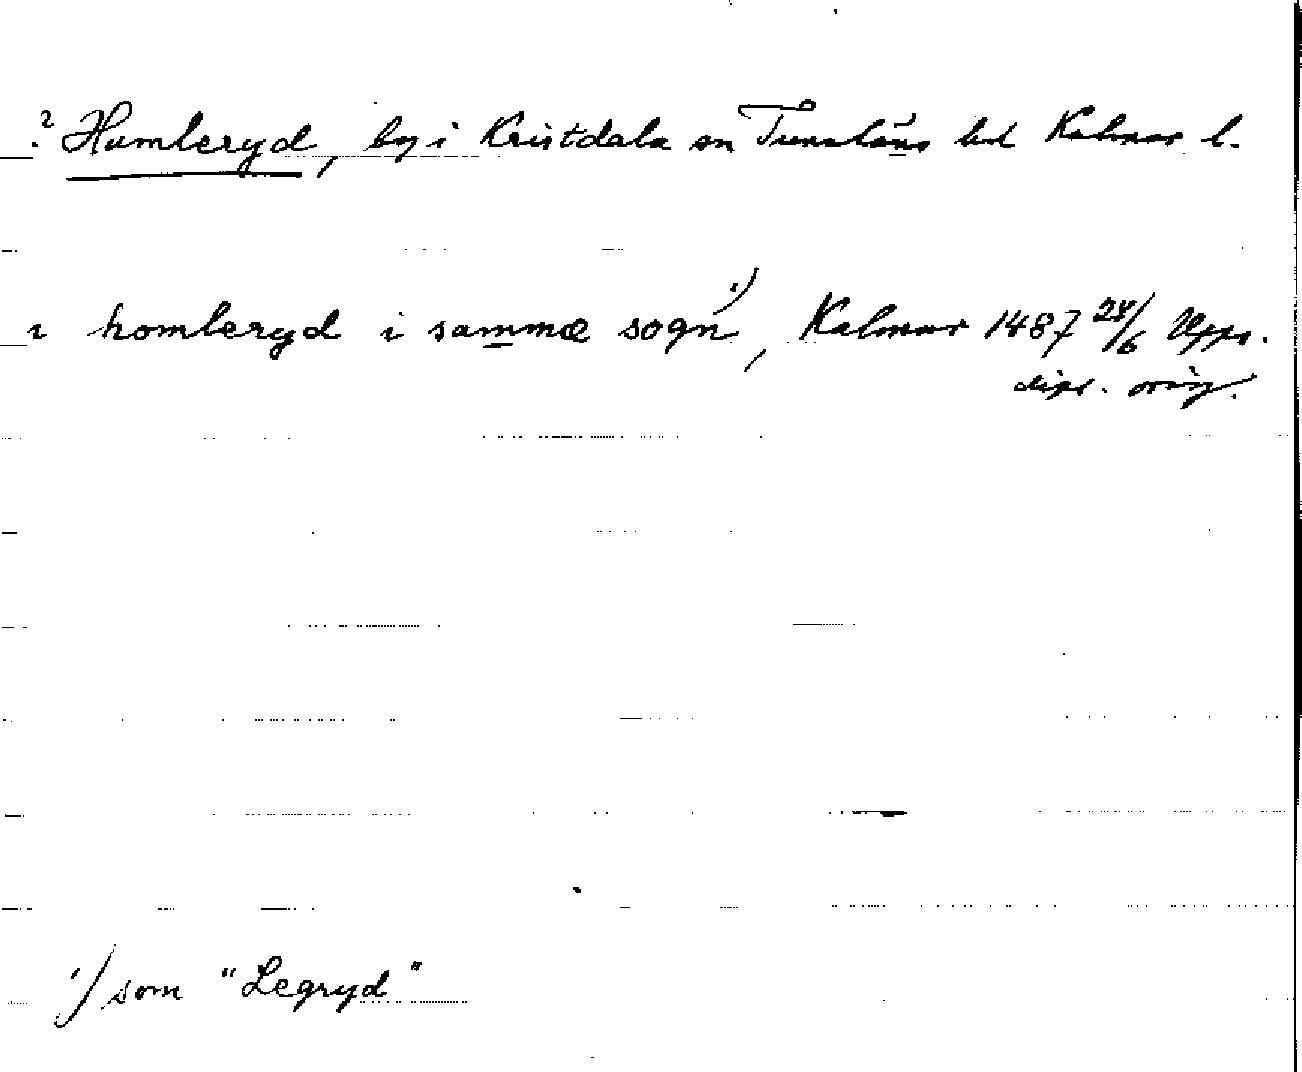 ? Humleryd, by i Kristdala sn Tunaläns hd Kalmar l.
i homleryd i sammæ sogn 1), Kalmar 1487 24/6 Upps.
dipl. orig.
1) som "Legryd"